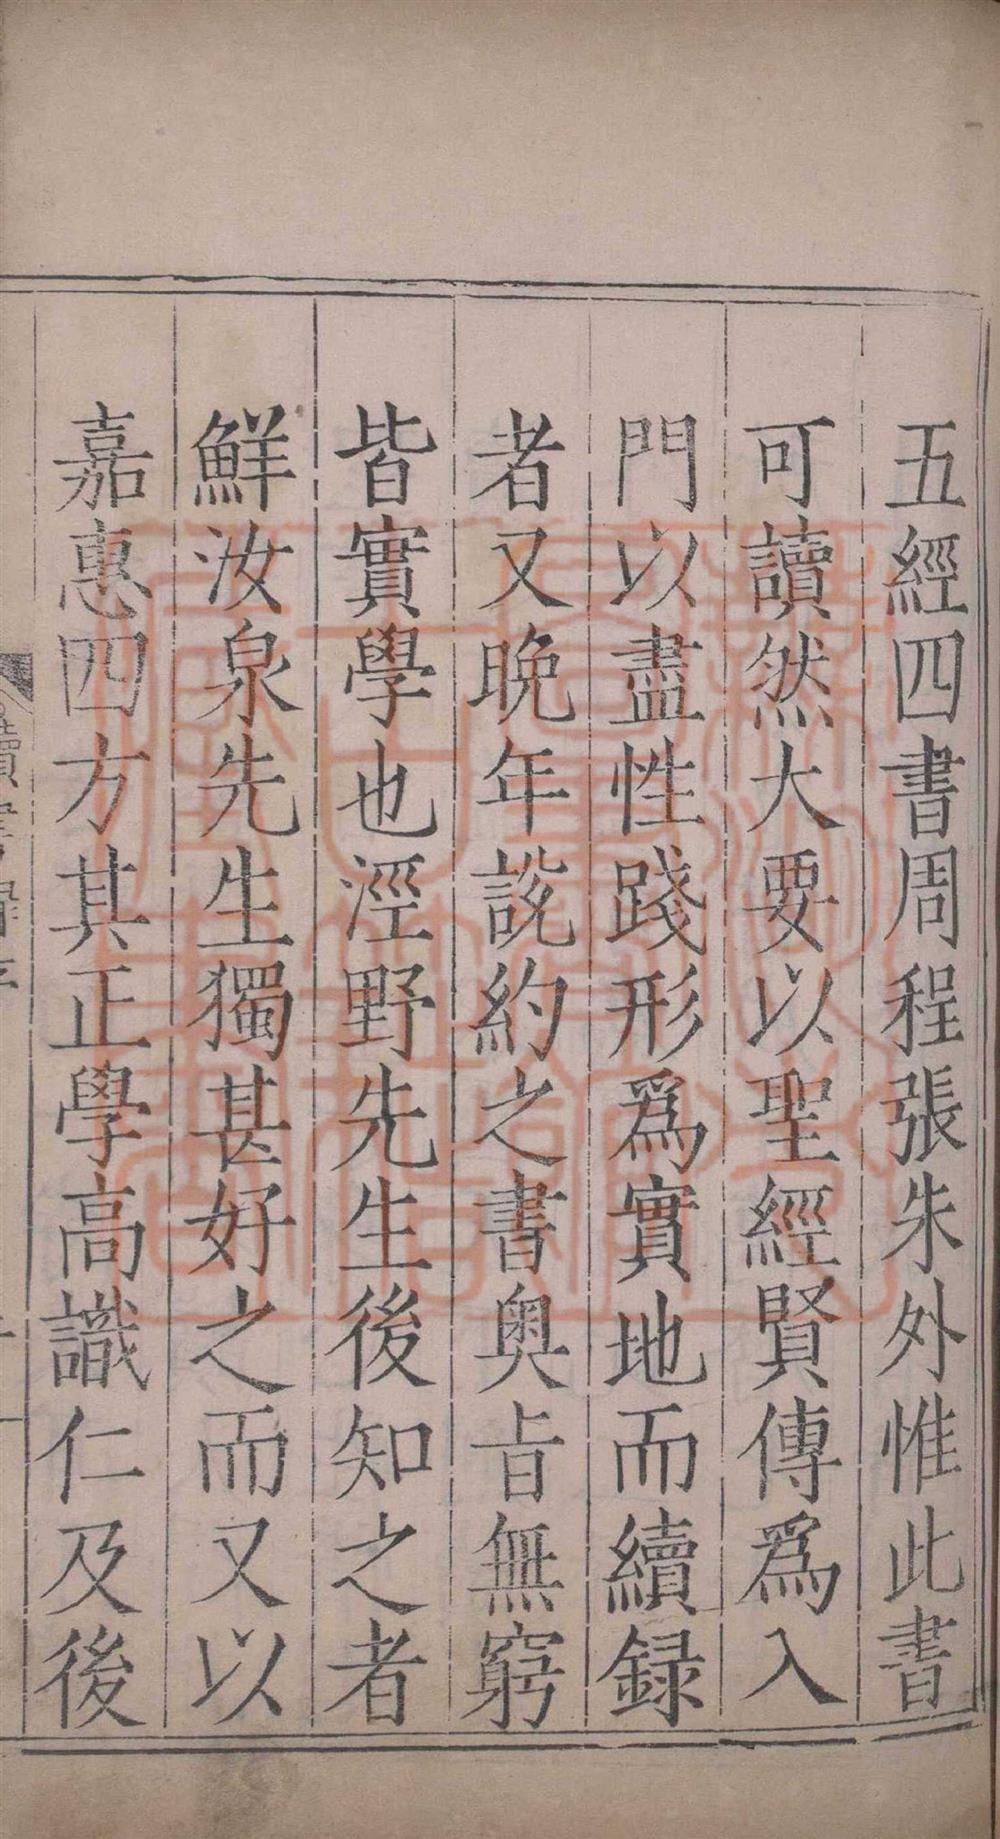 五經四書周程張朱外惟此書
可讀然大要以聖經賢傳爲入
門以盡性踐形爲實地而續録
者又晚年説約之書奥㫖無窮
皆實學也涇野先生後知之者
鮮汝泉先生獨甚好之而又以
嘉惠四方其正學高識仁及後
讀書録序